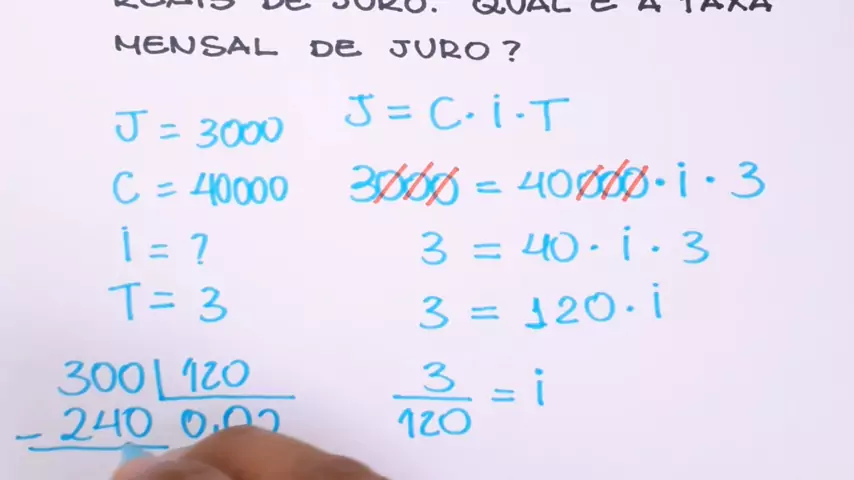 REAIS DE JURO. QUAL É A TAXA
MENSAL DE JURO?
J = 3000
C = 40000
i = ?
T = 3
J = C · i · T
3000 = 40000 · i · 3
3 = 40 · i · 3
3 = 120 · i
3/120 = i
300 120
- 240 0,02